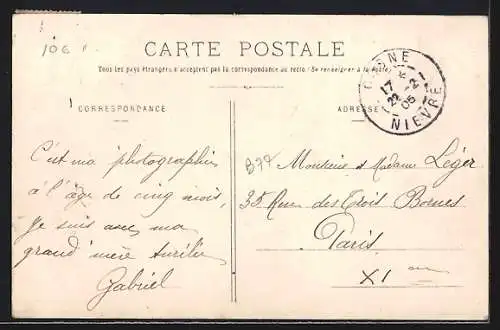 106
CARTE POSTALE
Tous les pays étrangers n'acceptent pas la correspondance au recto (Se renseigner à la Poste)
CORRESPONDANCE
ADRESSE
NIEVRE
C'est ma photographie
à l'âge de cinq mois,
je suis avec ma
grand'mère Aurélie
Gabriel
Monsieur et Madame Léger
35 Rue des Trois Bornes
Paris
XI